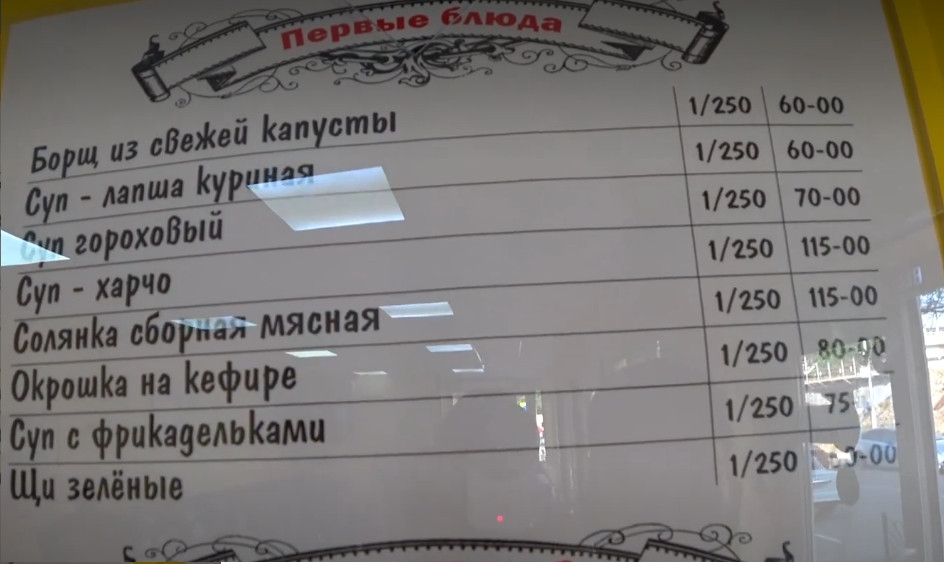 Первые блюда
Борщ из свежей капусты 1/250 60-00
Суп - лапша куриная 1/250 60-00
Суп гороховый 1/250 70-00
Суп - харчо 1/250 115-00
Солянка сборная мясная 1/250 115-00
Окрошка на кефире 1/250 80-00
Суп с фрикадельками 1/250 75
Щи зелёные 1/250